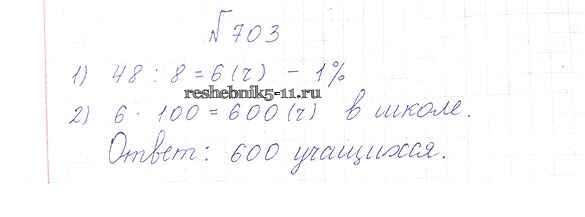 №703
1) 48 : 8 = 6 (ч) – 1%
reshebnik5-11.ru
2) 6 · 100 = 600 (ч) в школе.
Ответ: 600 учащихся.